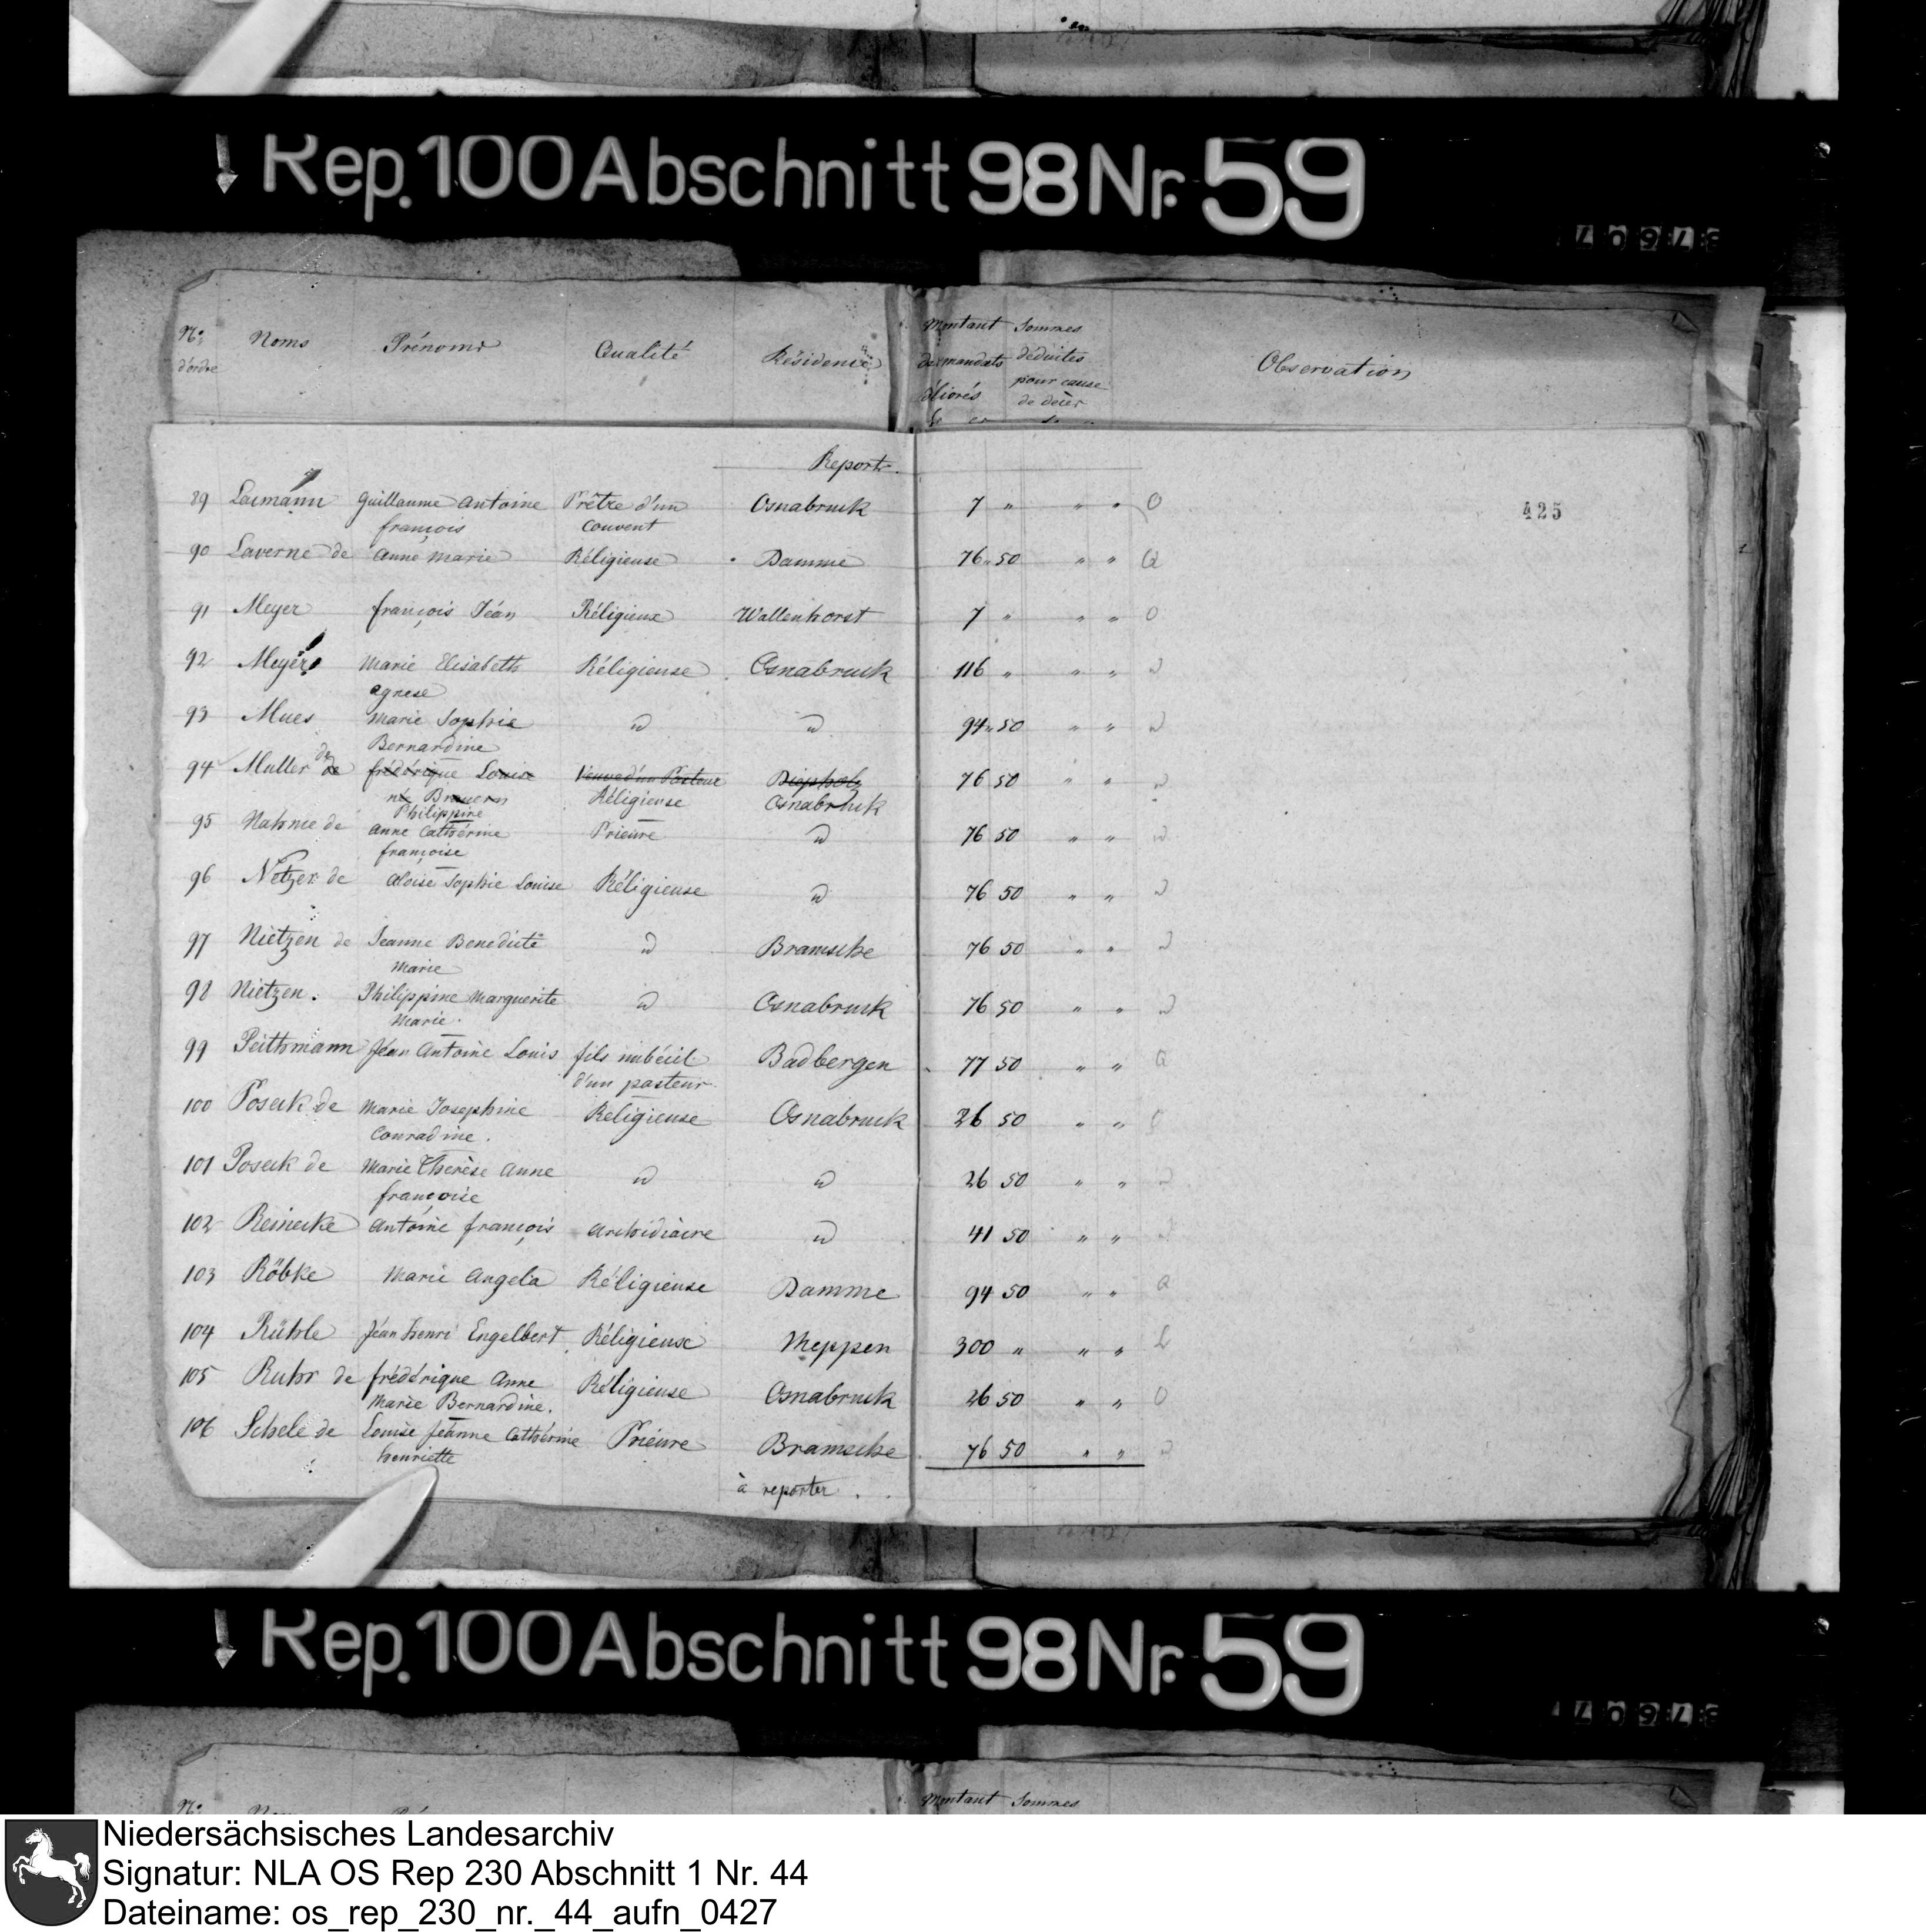 Rep. 100 Abschnitt 98 Nr. 59
37607
Nos d'ordre Noms Prénoms Qualité Résidence Montant des mandats délivrés Sommes déduites pour cause de décès Observation
fr cs fr
Report
425
89 Guillaume Antoine Prêtre d'un Osnabruck 7 " " " O
françois Couvent
90 Laverne de anne Marie Réligieuse Damme 76 " 50 " " Q
91 Meyer françois Jéan Réligieux Wallenhorst 7 " " " O
92 Meyer Marie Elisabeth Réligieuse Osnabruck 116 " " "
agnese
93 Mues Marie Sophie 94 " 50 " "
Bernardine
94 Muller de de frédérique Louise Veuve d'un Pasteur Diepholz 76 50 " "
née Brauern Réligieuse Osnabruck
Philippine
95 Nahme de anne Cathérine Prieure 76 50 " "
françoise
96 Netzer de aloise Sophie Louise Réligieuse 76 50 " "
97 Nietzen de Jeanne Benedicte Bramsche 76 50 " "
Marie
98 Nietzen. Philippine Marguerite Osnabruck 76 50 " "
Marie.
99 Peithmann Jéan Antoine Louis fils imbécil Badbergen 77 50 " " Q
d'un pasteur.
100 Poseck de Marie Josephine Réligieuse Osnabruck 26 50 " "
Conradine.
101 Poseck de Marie Thérèse Anne 26 50 " "
françoise
102 Reinecke Antoine françois Archidiacre 41 50 " "
103 Röbke Marie Angela Réligieuse Damme 94 50 " " Q
104 Rühle Jéan henri Engelbert Réligieuse Meppen 300 " " " L
105 Ruhr de frédérique Anne Réligieuse Osnabruck 26 50 " " O
Marie Bernardine.
106 Schele de Louise Jéanne Cathérine Prieure Bramsche 76 50 " "
henriette
à reporter .
Rep. 100 Abschnitt 98 Nr. 59
37607
Montant Sommes
Niedersächsisches Landesarchiv
Signatur: NLA OS Rep 230 Abschnitt 1 Nr. 44
Dateiname: os_rep_230_nr._44_aufn_0427